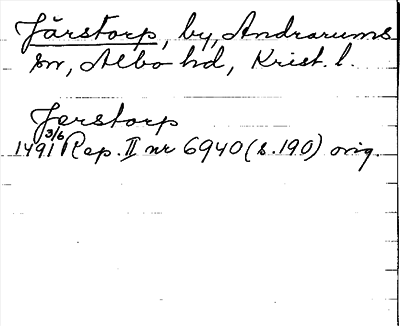 Järstorp, by, Andrarums
sn, Albo hd, Krist. l.
Jerstorp
1491 3/6 Rep. II nr 6940 (s. 190) orig.